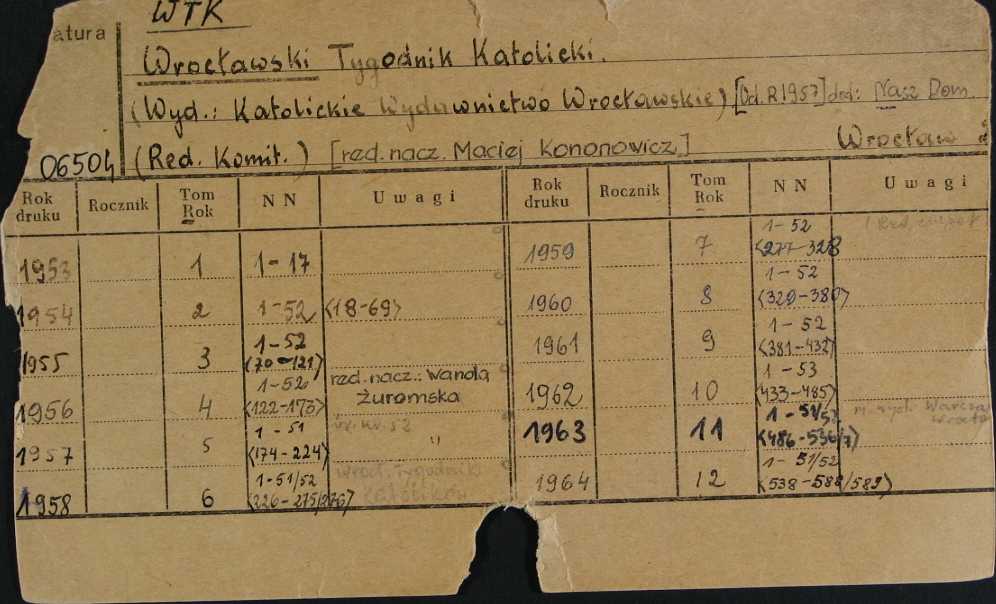 WTK
atura
Wrocławski Tygodnik Katolicki.
(Wyd.: Katolickie Wydawnictwo Wrocławskie) [Od. R 1957] dod: Nasz Dom
06504 (Red. Komit.) [red. nacz. Maciej Kononowicz] Wrocław
Rok druku Rocznik Tom Rok NN Uwagi Rok druku Rocznik Tom Rok NN Uwagi
1953 1 1-17
1954 2 1-52 <18-69>
1955 3 1-52 <70-121>
1956 4 1-52 <122-173> red. nacz.: Wanda Żuromska
1957 5 1-51 <174-224> "
1958 6 1-51/52 <226-275/276> Wrocł. Tygodnik Katolików
1959 7 1-52 <277-328>
1960 8 1-52 <329-380>
1961 9 1-52 <381-432>
1962 10 1-53 <433-485>
1963 11 1-51/52 <486-536/7>
1964 12 1-51/52 <538-588/589>